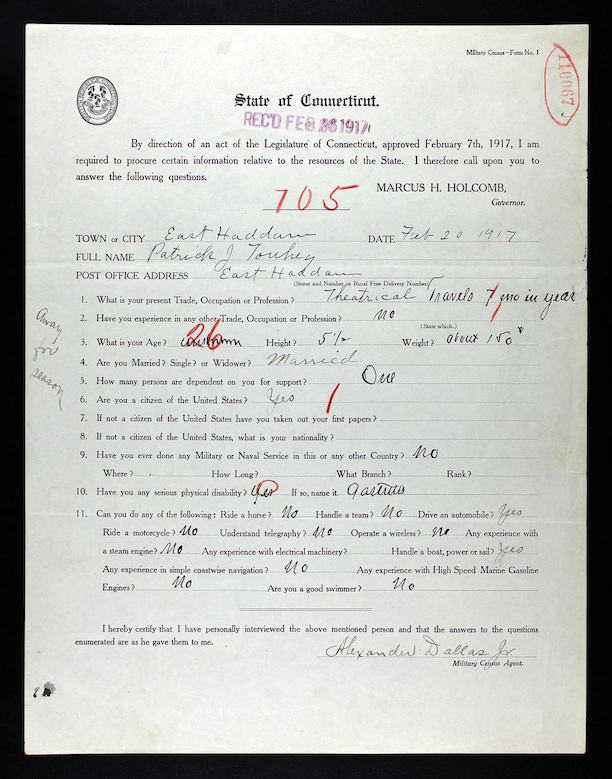 Military Census—Form No. 1
110067
State of Connecticut.
REC'D FEB 26 1917
By direction of an act of the Legislature of Connecticut, approved February 7th, 1917, I am
required to procure certain information relative to the resources of the State. I therefore call upon you to
answer the following questions.
705
MARCUS H. HOLCOMB,
Governor.
TOWN OR CITY East Haddam DATE Feb 20 1917
FULL NAME Patrick J Touhey
POST OFFICE ADDRESS East Haddam
(Street and Number or Rural Free Delivery Number)
1. What is your present Trade, Occupation or Profession? Theatrical Travels 7 mo in year
2. Have you experience in any other Trade, Occupation or Profession? No
(State which.)
3. What is your Age? 26 Height? 5½ Weight? about 150#
Away
for
season
4. Are you Married? Single? or Widower? Married
5. How many persons are dependent on you for support? One
6. Are you a citizen of the United States? Yes
7. If not a citizen of the United States have you taken out your first papers?
8. If not a citizen of the United States, what is your nationality?
9. Have you ever done any Military or Naval Service in this or any other Country? No
Where? How Long? What Branch? Rank?
10. Have you any serious physical disability? Yes If so, name it.
11. Can you do any of the following: Ride a horse? No Handle a team? No Drive an automobile? Yes
Ride a motorcycle? No Understand telegraphy? No Operate a wireless? No Any experience with
a steam engine? No Any experience with electrical machinery? Handle a boat, power or sail? Yes
Any experience in simple coastwise navigation? No Any experience with High Speed Marine Gasoline
Engines? No Are you a good swimmer? No
I hereby certify that I have personally interviewed the above mentioned person and that the answers to the questions
enumerated are as he gave them to me.
Alexander Dallas Jr.
Military Census Agent.